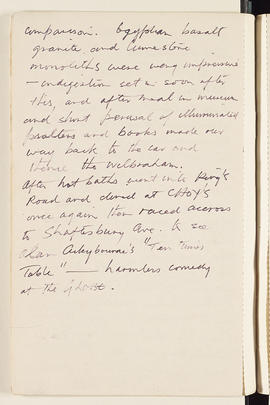 comparison. Egyptian basalt
granite and limestone
monoliths were very impressive
– indigestion set in soon after
this, and after meal in museum
and short perusal of illuminated
psalters and books made our
way back to the car and
thence the Wilbraham.
After hot baths went into King's
Road and dined at CHOY'S
once again then raced accross
to Shaftesbury Ave. to see
Alan Ackybourne's "Ten Times
Table" — harmless comedy
at the Ghost.